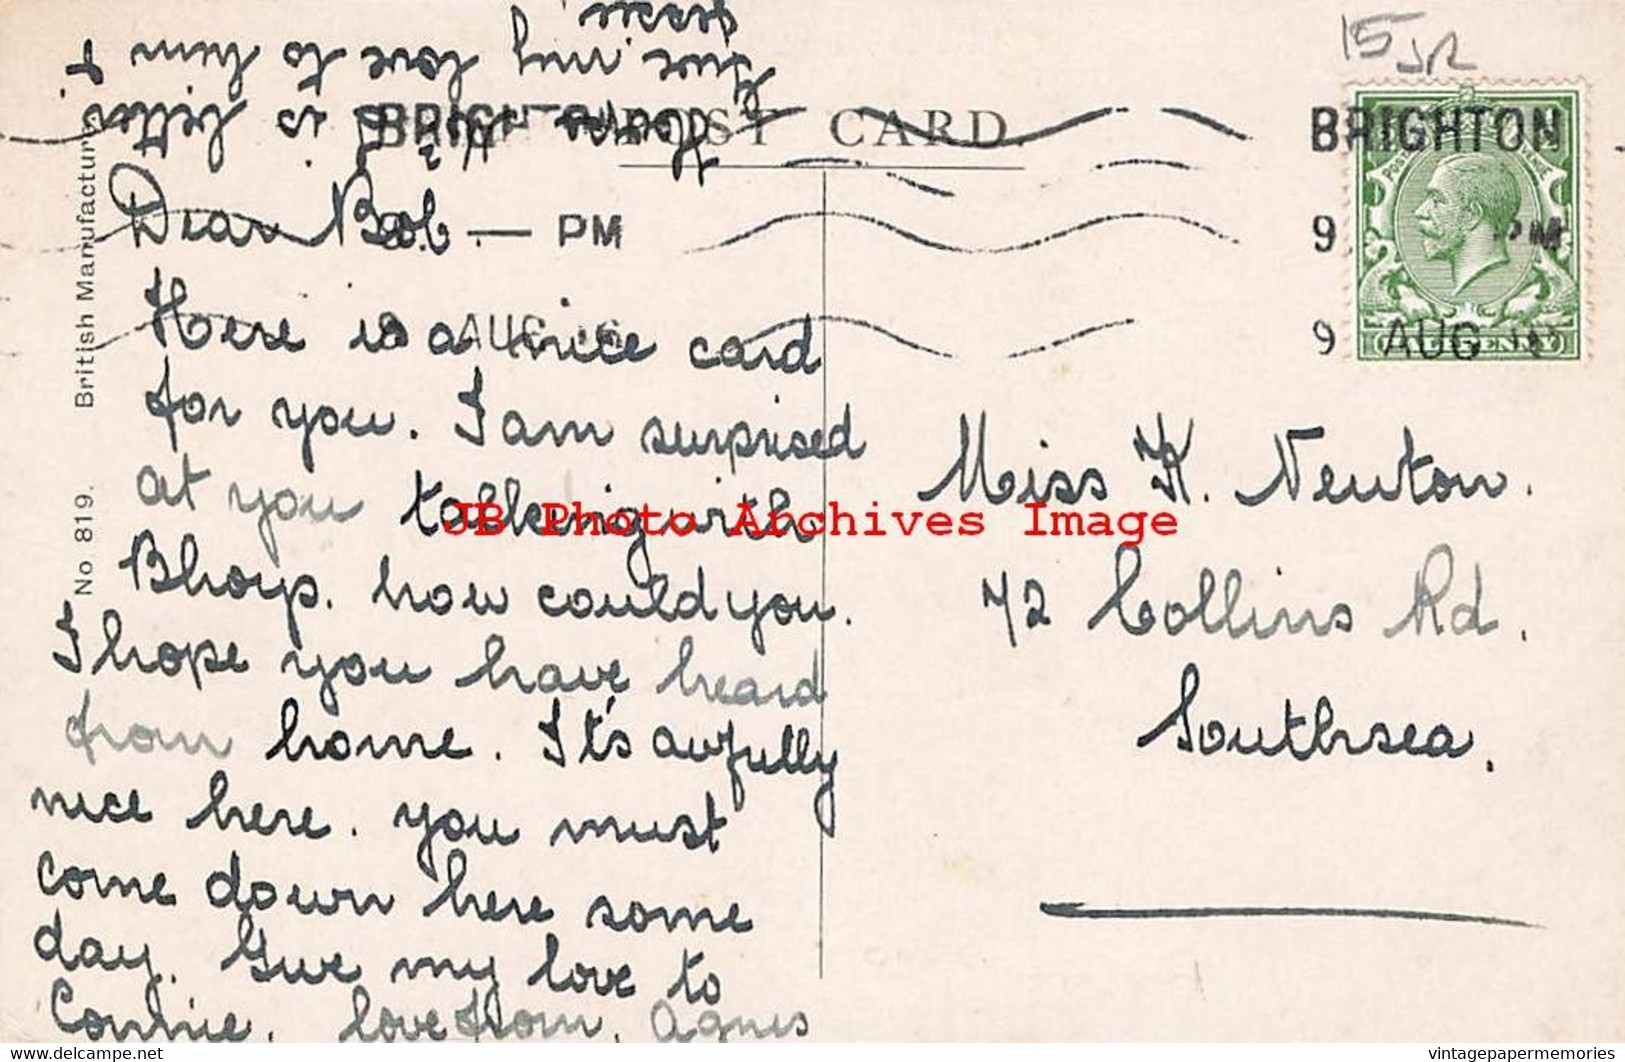 15
POST CARD
BRIGHTON
BRIGHTON
9 PM
9 AUG
HALFPENNY
PM
AUG
No 819. British Manufacture
Dear Bob.
Here is a nice card
for you. I am surprised
at you talking with
Bhoys. how could you.
I hope you have heard
from home. It's awfully
nice here. you must
come down here some
day. Give my love to
Connie. love from, Agnes
is better
Give my love to him &
Miss K. Newton.
72 Collins Rd.
Southsea.
JB Photo Archives Image
www.delcampe.net
vintagepapermemories